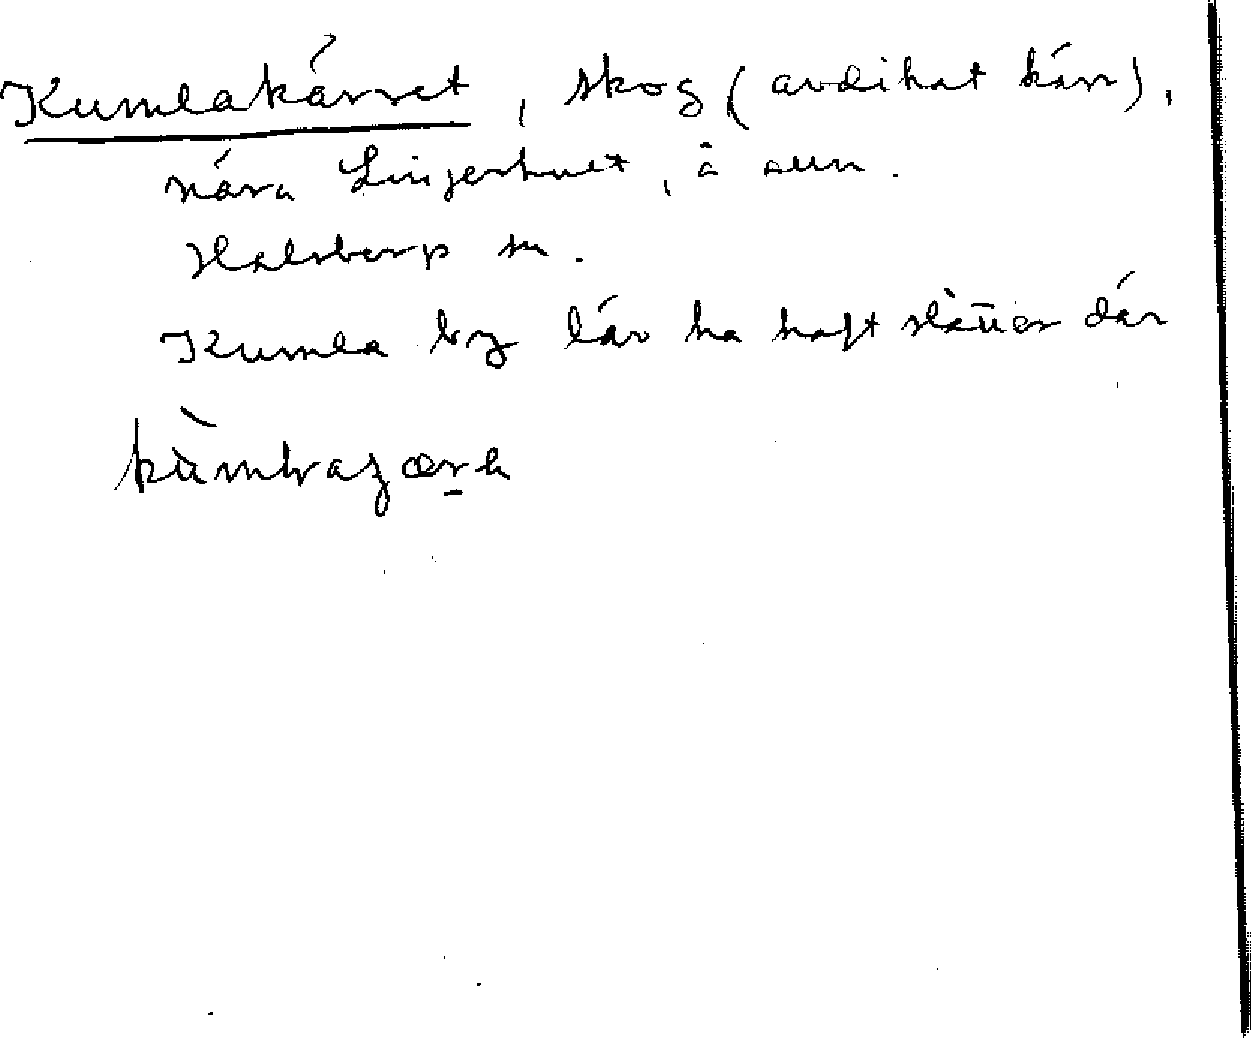 Kumlakärret, skog (avdikat kärr),
nära Lingerhult, å
Halsberg sn.
Kumla by lär ha haft slåtter där